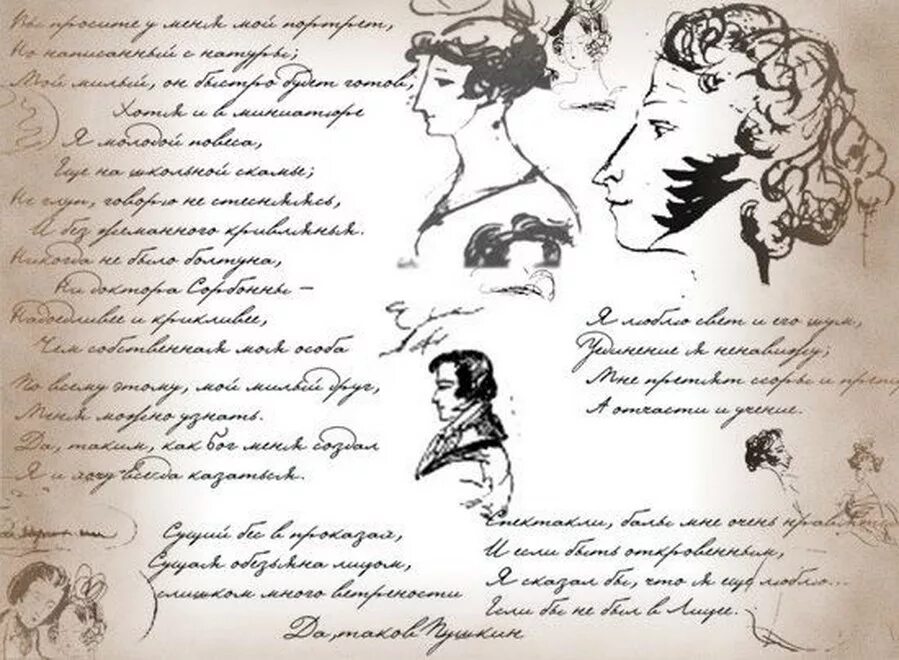 Вы просите у меня мой портрет,
Но написанный с натуры;
Мой милый, он быстро будет готов,
Хотя и в миниатюре
Я молодой повеса,
Еще на школьной скамье;
Не глуп, говорю не стесняясь,
И без жеманного кривлянья.
Никогда не было болтуна,
Ни доктора Сорбонны –
Надоедливее и крикливее,
Чем собственная моя особа
По всему этому, мой милый друг,
Меня можно узнать.
Да, таким, как бог меня создал
Я и хочу всегда казаться.
Сущий бес в проказах,
Сущая обезьяна лицом,
слишком много ветрености
Да, таков Пушкин
Я люблю свет и его шум,
Уединение я ненавижу;
Мне претят ссоры и препи
А отчасти и учение.
Спектакли, балы мне очень нравятся
И если быть откровенным,
Я сказал бы, что я еще люблю...
Если бы не был в Лицее.